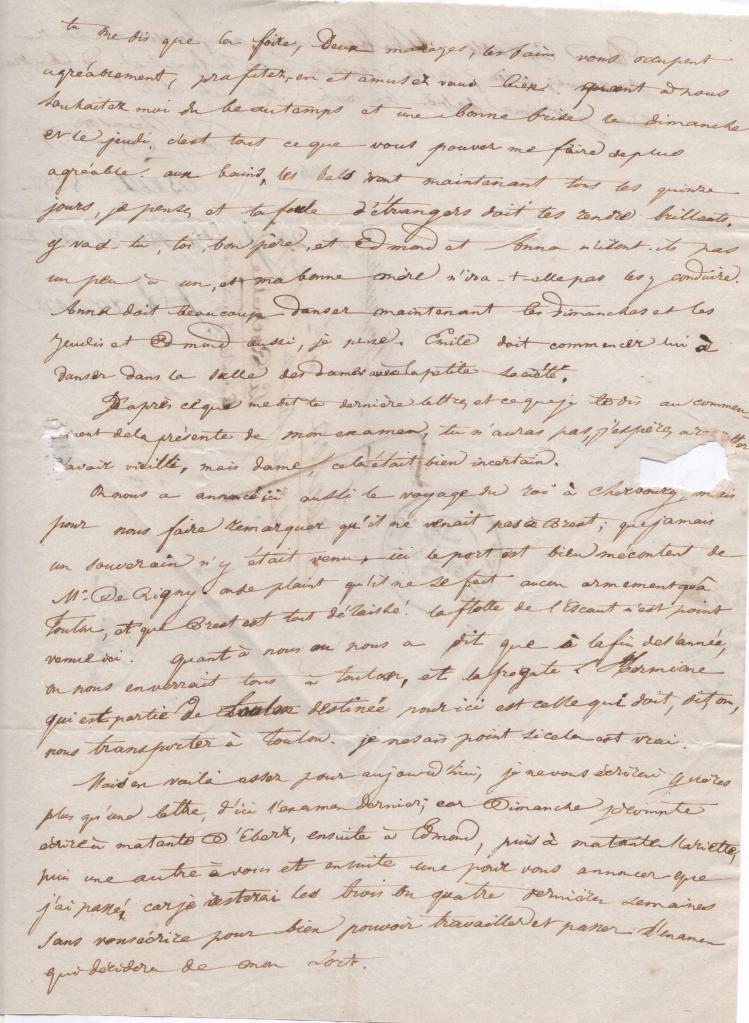 tu me dis que la foire, Deux mariages, les bains vous occupent
agréablement, profitez-en et amusez vous bien quant à nous
souhaitez moi du beau temps et une bonne brise le dimanche
et le jeudi, c'est tout ce que vous pouvez me faire de plus
agréable. aux bains, les bals vont maintenant tous les quinze
jours, je pense, et la foule d'étrangers doit les rendre brillants.
y vas-tu, toi, bon père, et Edmond et Anna n'iront-ils pas
un peu à un, et ma bonne mère n'ira-t-elle pas les y conduire.
Anna doit beaucoup danser maintenant les dimanches et les
jeudis et Edmond aussi, je pense. Emile doit commencer lui à
danser dans la salle des dames avec la petite société.
D'après ce que me dit ta dernière lettre, et ce que je te dis au commen-
cement de la présente de mon examen, tu n'auras pas, j'espère,
avoir vieilli, mais dame cela était bien incertain.
On nous a annoncé ici aussi le voyage du roi à Cherbourg, mais
pour nous faire remarquer qu'il ne venait pas à Brest; que jamais
un souverain n'y était venu, ici le port est bien mécontent de
Mr. De Rigny. on se plaint qu'il ne se fait aucun armement qu'à
Toulon, et que Brest est tout délaissé. la flotte de l'Escaut n'est point
venue ici. quant à nous on nous a dit que à la fin de l'année,
on nous enverrait tous à toulon, et la frégate l'Hermione
qui est partie de Toulon destinée pour ici est celle qui doit, dit on,
nous transporter à Toulon. je ne sais point si cela est vrai.
Mais en voilà assez pour aujourd'hui, je ne vous écrirai guères
plus qu'une lettre, d'ici l'examen dernier; car Dimanche je compte
écrire à matante D'Ebert, ensuite à Edmond, puis à matante Mariette,
puis une autre à vous et ensuite une pour vous annoncer que
j'ai passé, car je resterai les trois ou quatre dernières semaines
sans vous écrire pour bien pouvoir travailler et passer l'Examen
qui décidera de mon sort.